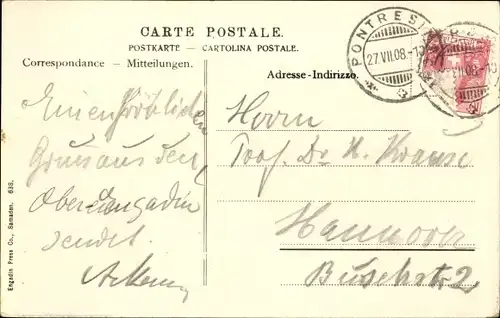 CARTE POSTALE.
POSTKARTE – CARTOLINA POSTALE.
Correspondance – Mitteilungen.
Adresse - Indirizzo.
PONTRESINA
27.VII.08.-10
Einen fröhlichen
Gruss aus dem
Oberengadin
sendet
Herrn
Prof. Dr. K. Krause
Hannover
Buschstr. 2
Engadin Press Co., Samaden. 638.